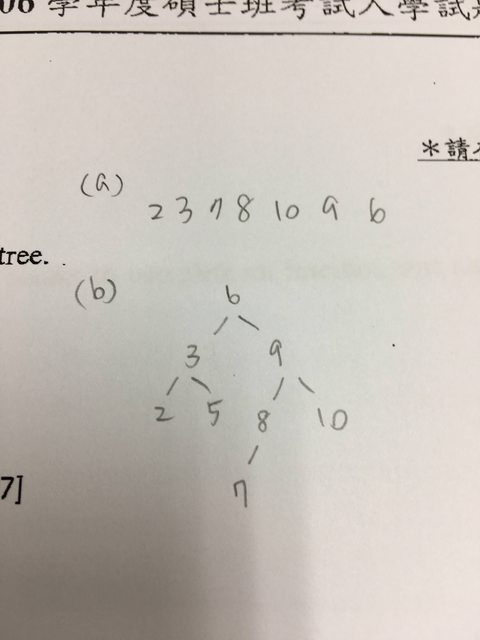 06 學年度碩士班考試入學試題
*請
(a)
2 3 7 8 10 9 6
tree.
(b)
6
3 9
2 5 8 10
7
7]